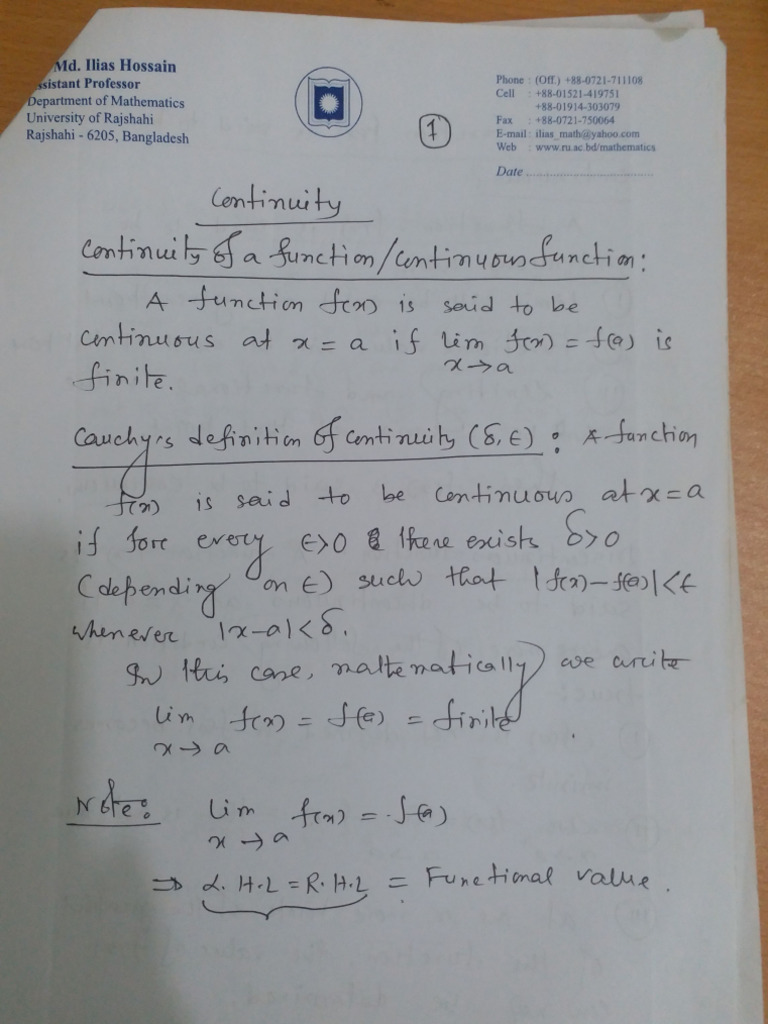 Md. Ilias Hossain
Assistant Professor
Department of Mathematics
University of Rajshahi
Rajshahi - 6205, Bangladesh
Phone : (Off.) +88-0721-711108
Cell : +88-01521-419751
+88-01914-303079
Fax : +88-0721-750064
E-mail : ilias_math@yahoo.com
Web : www.ru.ac.bd/mathematics
Date
1
Continuity
Continuity of a function/continuous function:
A function f(x) is said to be
continuous at x = a if lim f(x) = f(a) is
x → a
finite.
Cauchy's definition of continuity (δ, ε) : A function
f(x) is said to be continuous at x = a
if fore every ε>0 there exists δ>0
(depending on ε) such that |f(x) - f(a)| < ε
whenever |x-a| < δ.
In this case, mathematically we write
lim f(x) = f(a) = finite.
x → a
Note: lim f(x) = f(a)
x → a
⇒ L.H.L = R.H.L = Functional value.